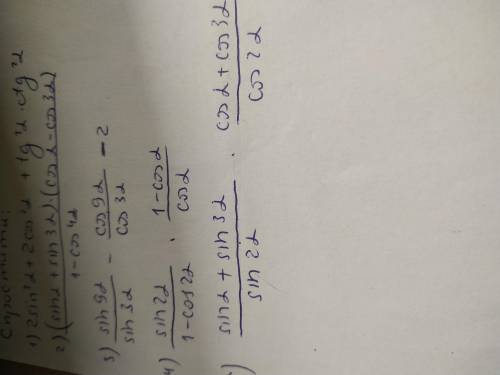 Спростити:
1) 2sin²α + 2cos²α + tg²α · ctg²α
2) (sinα + sin3α)·(cosα - cos3α) / 1 - cos4α
3) sin9α / sin3α - cos9α / cos3α - 2
4) sin2α / 1-cos2α · 1-cosα / cosα
) sinα + sin3α / sin2α · cosα + cos3α / cos2α